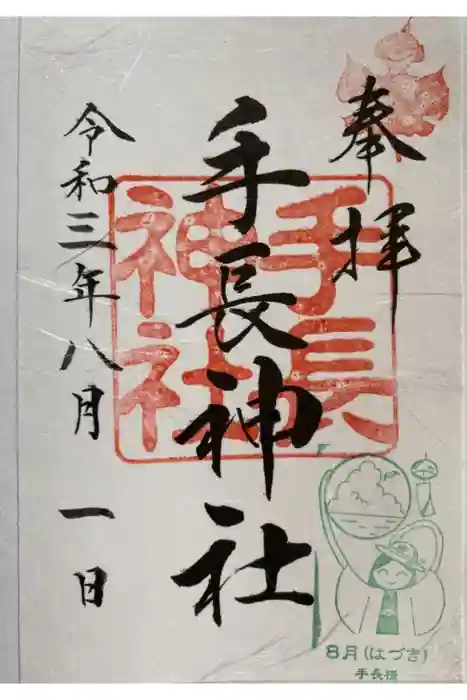 奉拝
手長神社
令和三年八月一日
手長
神社
8月(はづき)
手長様